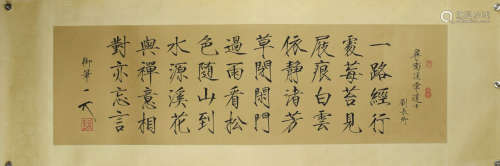 尋南溪常道士
劉長卿
一路經行
處莓苔見
屐痕白雲
依靜渚芳
草閉閑門
過雨看松
色隨山到
水源溪花
與禪意相
對亦忘言
御筆